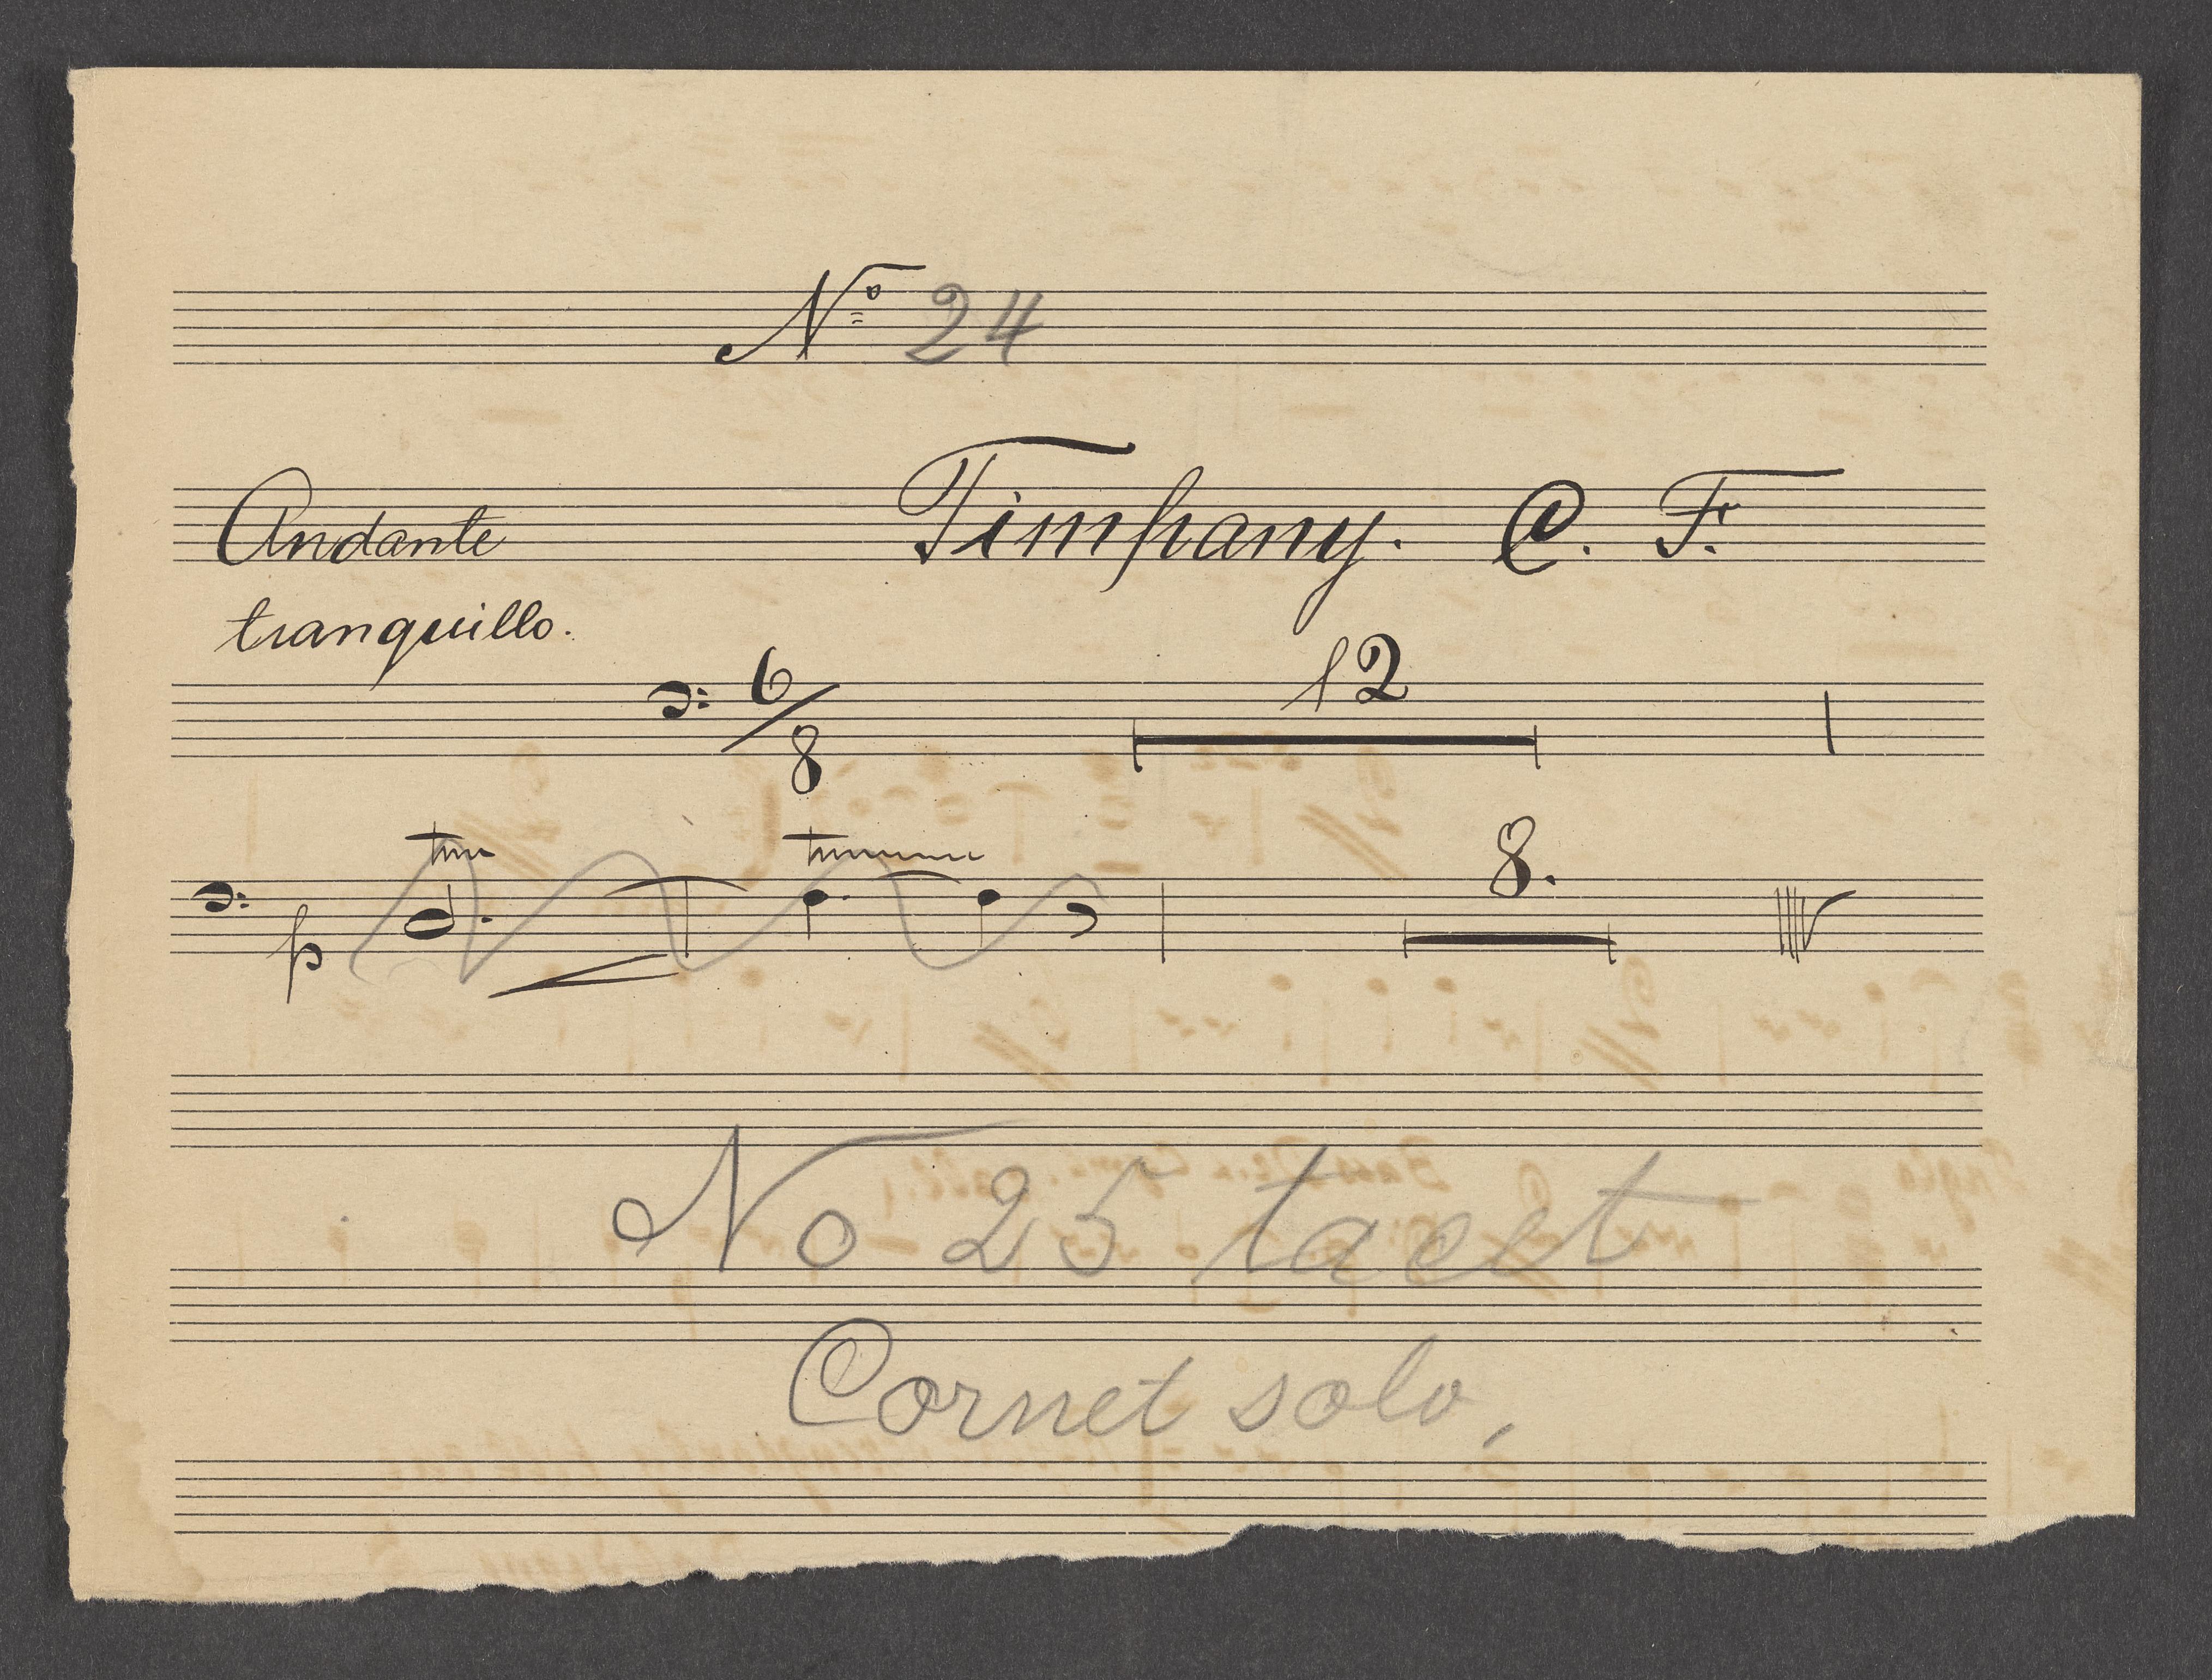 Nº 24
Andante Timpany. C. F.
tranquillo.
6/8 12
p 8.
No 25 tacet
Cornet solo,